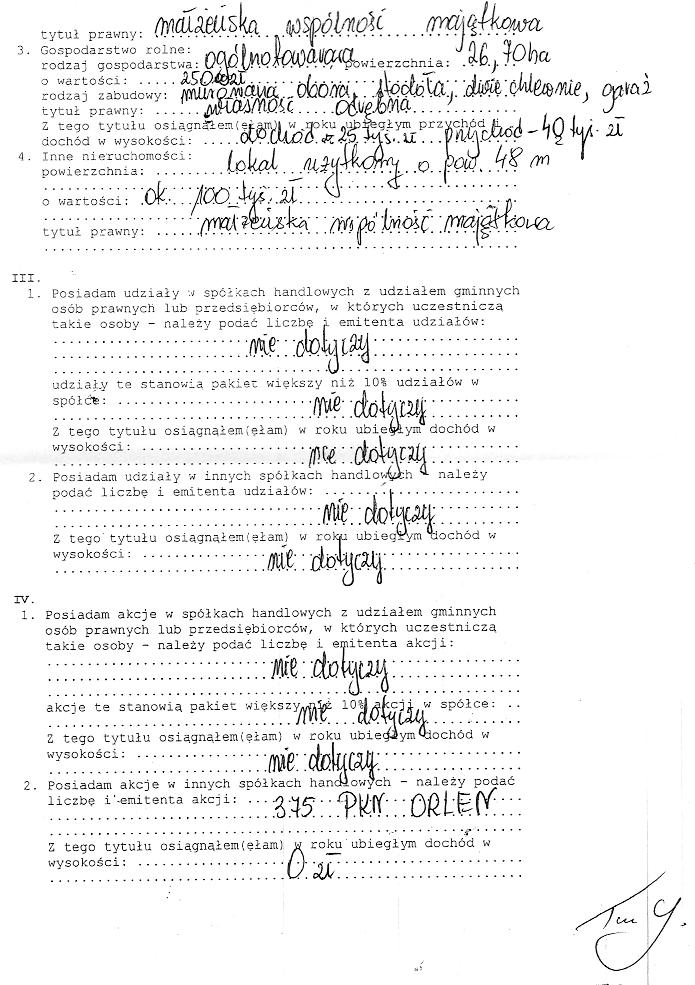 tytuł prawny: małżeńska wspólność majątkowa
3. Gospodarstwo rolne:
rodzaj gospodarstwa: ogólnotowarowa powierzchnia: 26,70 ha
o wartości: 250 zł
rodzaj zabudowy: murowana obora, stodoła, dwie chlewnie, garaż
tytuł prawny: własność odrębna
Z tego tytułu osiągnąłem(ęłam) w roku ubiegłym przychód i
dochód w wysokości: dochód - 25 tyś. zł przychód - 40 tyś. zł
4. Inne nieruchomości:
powierzchnia: lokal użytkowy o pow 48 m
o wartości: ok. 100 tyś. zł
tytuł prawny: małżeńska wspólność majątkowa
III.
1. Posiadam udziały w spółkach handlowych z udziałem gminnych
osób prawnych lub przedsiębiorców, w których uczestniczą
takie osoby - należy podać liczbę i emitenta udziałów:
nie dotyczy
udziały te stanowią pakiet większy niż 10% udziałów w
spółce: nie dotyczy
Z tego tytułu osiągnąłem(ęłam) w roku ubiegłym dochód w
wysokości: nie dotyczy
2. Posiadam udziały w innych spółkach handlowych - należy
podać liczbę i emitenta udziałów:
nie dotyczy
Z tego tytułu osiągnąłem(ęłam) w roku ubiegłym dochód w
wysokości: nie dotyczy
IV.
1. Posiadam akcje w spółkach handlowych z udziałem gminnych
osób prawnych lub przedsiębiorców, w których uczestniczą
takie osoby - należy podać liczbę i emitenta akcji:
nie dotyczy
akcje te stanowią pakiet większy niż 10% akcji w spółce:
nie dotyczy
Z tego tytułu osiągnąłem(ęłam) w roku ubiegłym dochód w
wysokości: nie dotyczy
2. Posiadam akcje w innych spółkach handlowych - należy podać
liczbę i emitenta akcji: 375 PKN ORLEN
Z tego tytułu osiągnąłem(ęłam) w roku ubiegłym dochód w
wysokości: 0 zł